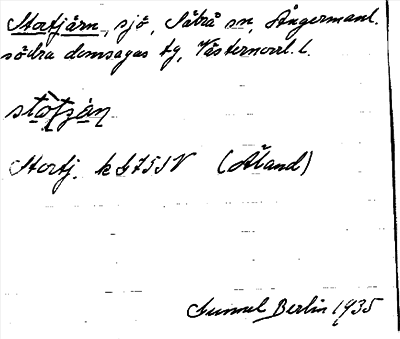 Stortjärn, sjö, Säbrå sn, Ångermanl.
södra domsagas tg, Västernorrl. l.
Stortj. k G75SV (Åland)
Gunnel Berlin 1935